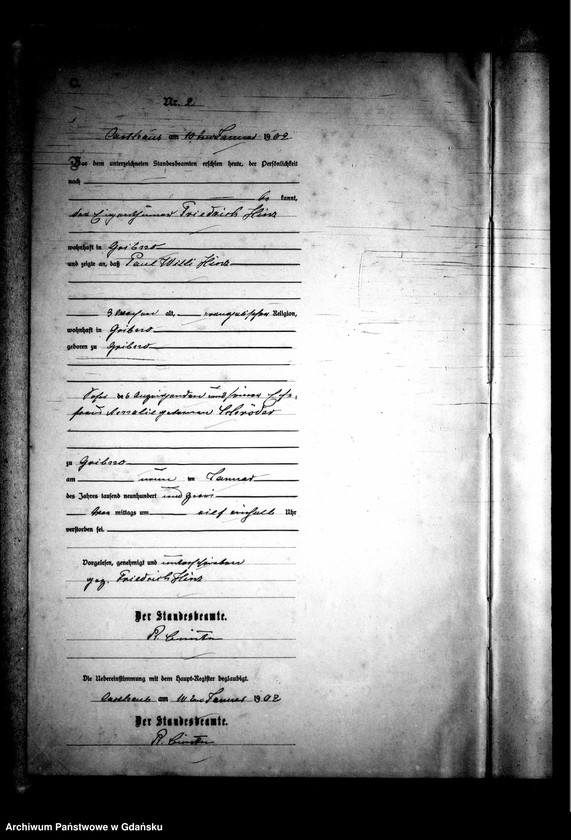 C.
Nr. 2
Carthaus am 10ten Januar 1902
Vor dem unterzeichneten Standesbeamten erschien heute, der Persönlichkeit
nach
be kannt,
der Eigenthümer Friedrich Hinz
wohnhaft in Gribno
und zeigte an, daß Paul Willi Hinz
3 Wochen alt, evangelischer Religion,
wohnhaft in Gribno
geboren zu Gribno
Sohn des Anzeigenden und seiner Ehe-
frau Amalie geborenen Schröder
zu Gribno
am neun ten Januar
des Jahres tausend neunhundert und zwei
Vor mittags um elf einhalb Uhr
verstorben sei.
Vorgelesen, genehmigt und unterschrieben
gez. Friedrich Hinz
Der Standesbeamte.
R.
Die Uebereinstimmung mit dem Haupt-Register beglaubigt.
Carthaus am 10ten Januar 1902
Der Standesbeamte.
R.
Archiwum Państwowe w Gdańsku